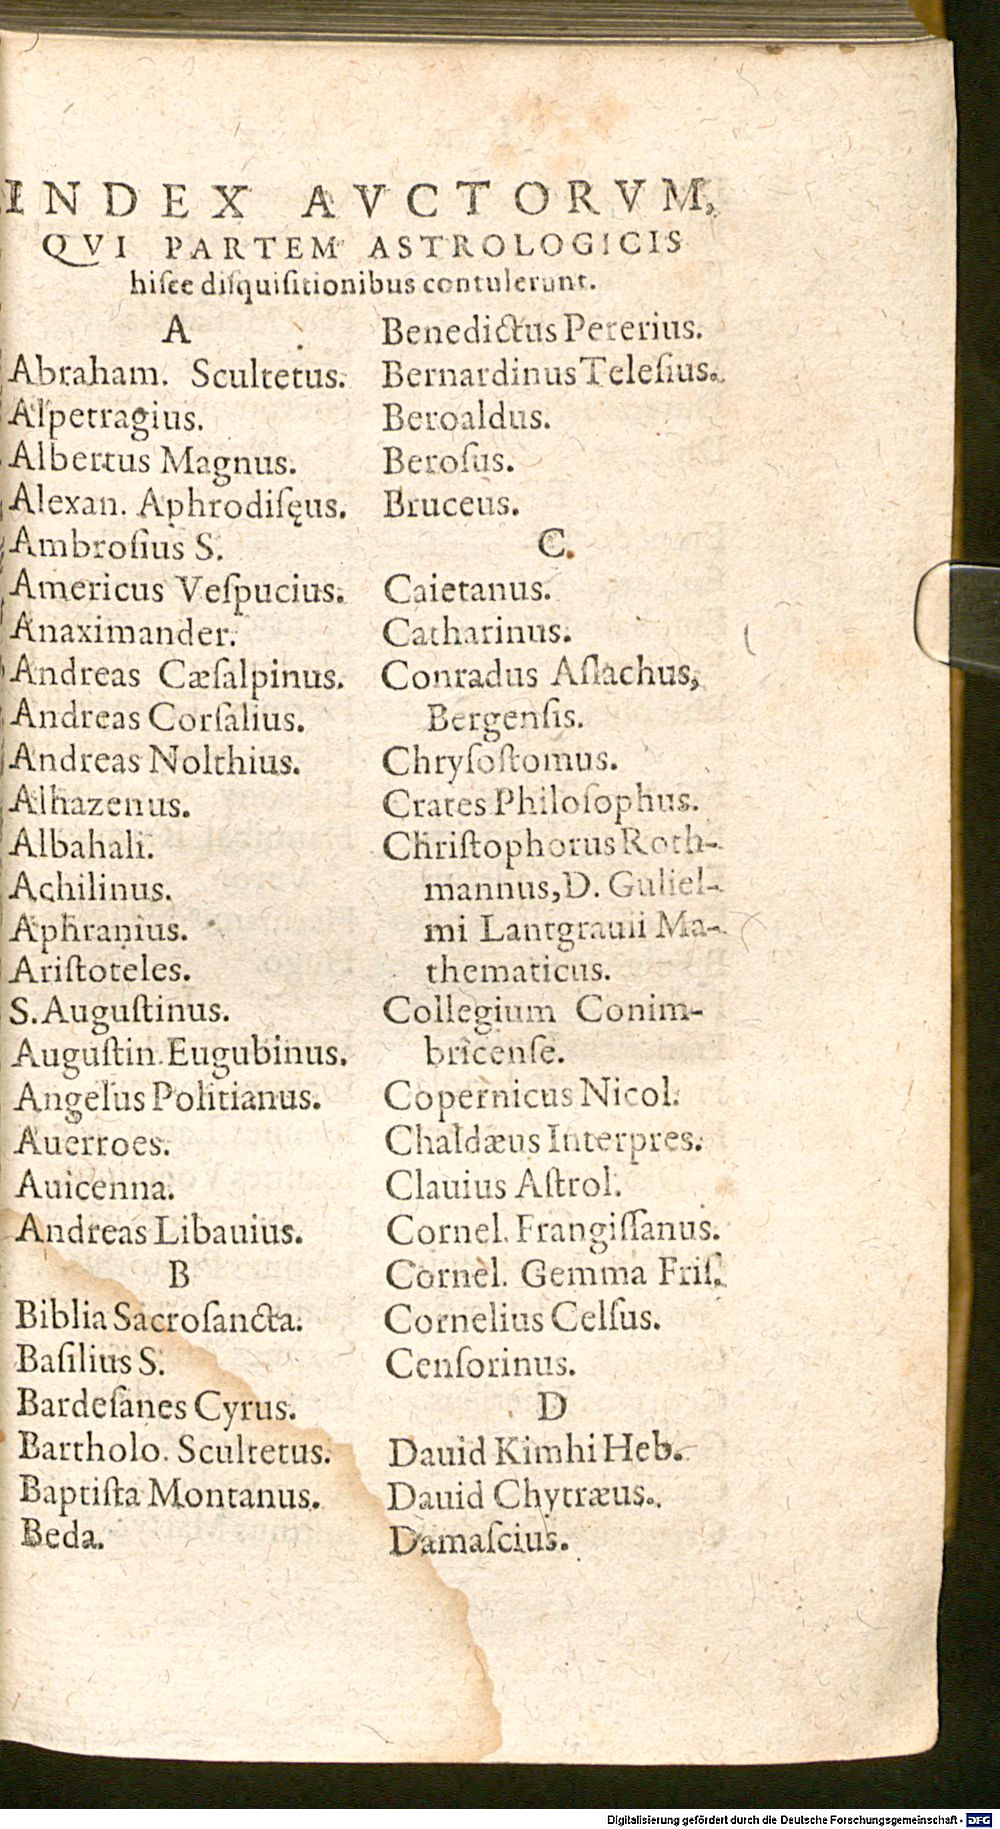 INDEX AVCTORVM,
QVI PARTEM ASTROLOGICIS
hiſce diſquiſitionibus contulerunt.
A
Abraham. Scultetus.
Alpetragius.
Albertus Magnus.
Alexan. Aphrodiſęus.
Ambroſius S.
Americus Veſpucius.
Anaximander.
Andreas Cæſalpinus.
Andreas Corſalius.
Andreas Nolthius.
Alhazenus.
Albahali.
Achilinus.
Aphranius.
Ariſtoteles.
S. Auguſtinus.
Auguſtin. Eugubinus.
Angelus Politianus.
Auerroes.
Auicenna.
Andreas Libauius.
B
Biblia Sacroſancta.
Baſilius S.
Bardeſanes Cyrus.
Bartholo. Scultetus.
Baptiſta Montanus.
Beda.
Benedictus Pererius.
Bernardinus Teleſius.
Beroaldus.
Beroſus.
Bruceus.
C.
Caietanus.
Catharinus.
Conradus Aſlachus,
Bergenſis.
Chryſoſtomus.
Crates Philoſophus.
Chriſtophorus Roth-
mannus, D. Guliel-
mi Lantgrauii Ma-
thematicus.
Collegium Conim-
bricenſe.
Copernicus Nicol.
Chaldæus Interpres.
Clauius Aſtrol.
Cornel. Frangiſſanus.
Cornel. Gemma Friſ.
Cornelius Celſus.
Cenſorinus.
D
Dauid Kimhi Heb.
Dauid Chytræus.
Damaſcius.
Digitalisierung gefördert durch die Deutsche Forschungsgemeinschaft - DFG